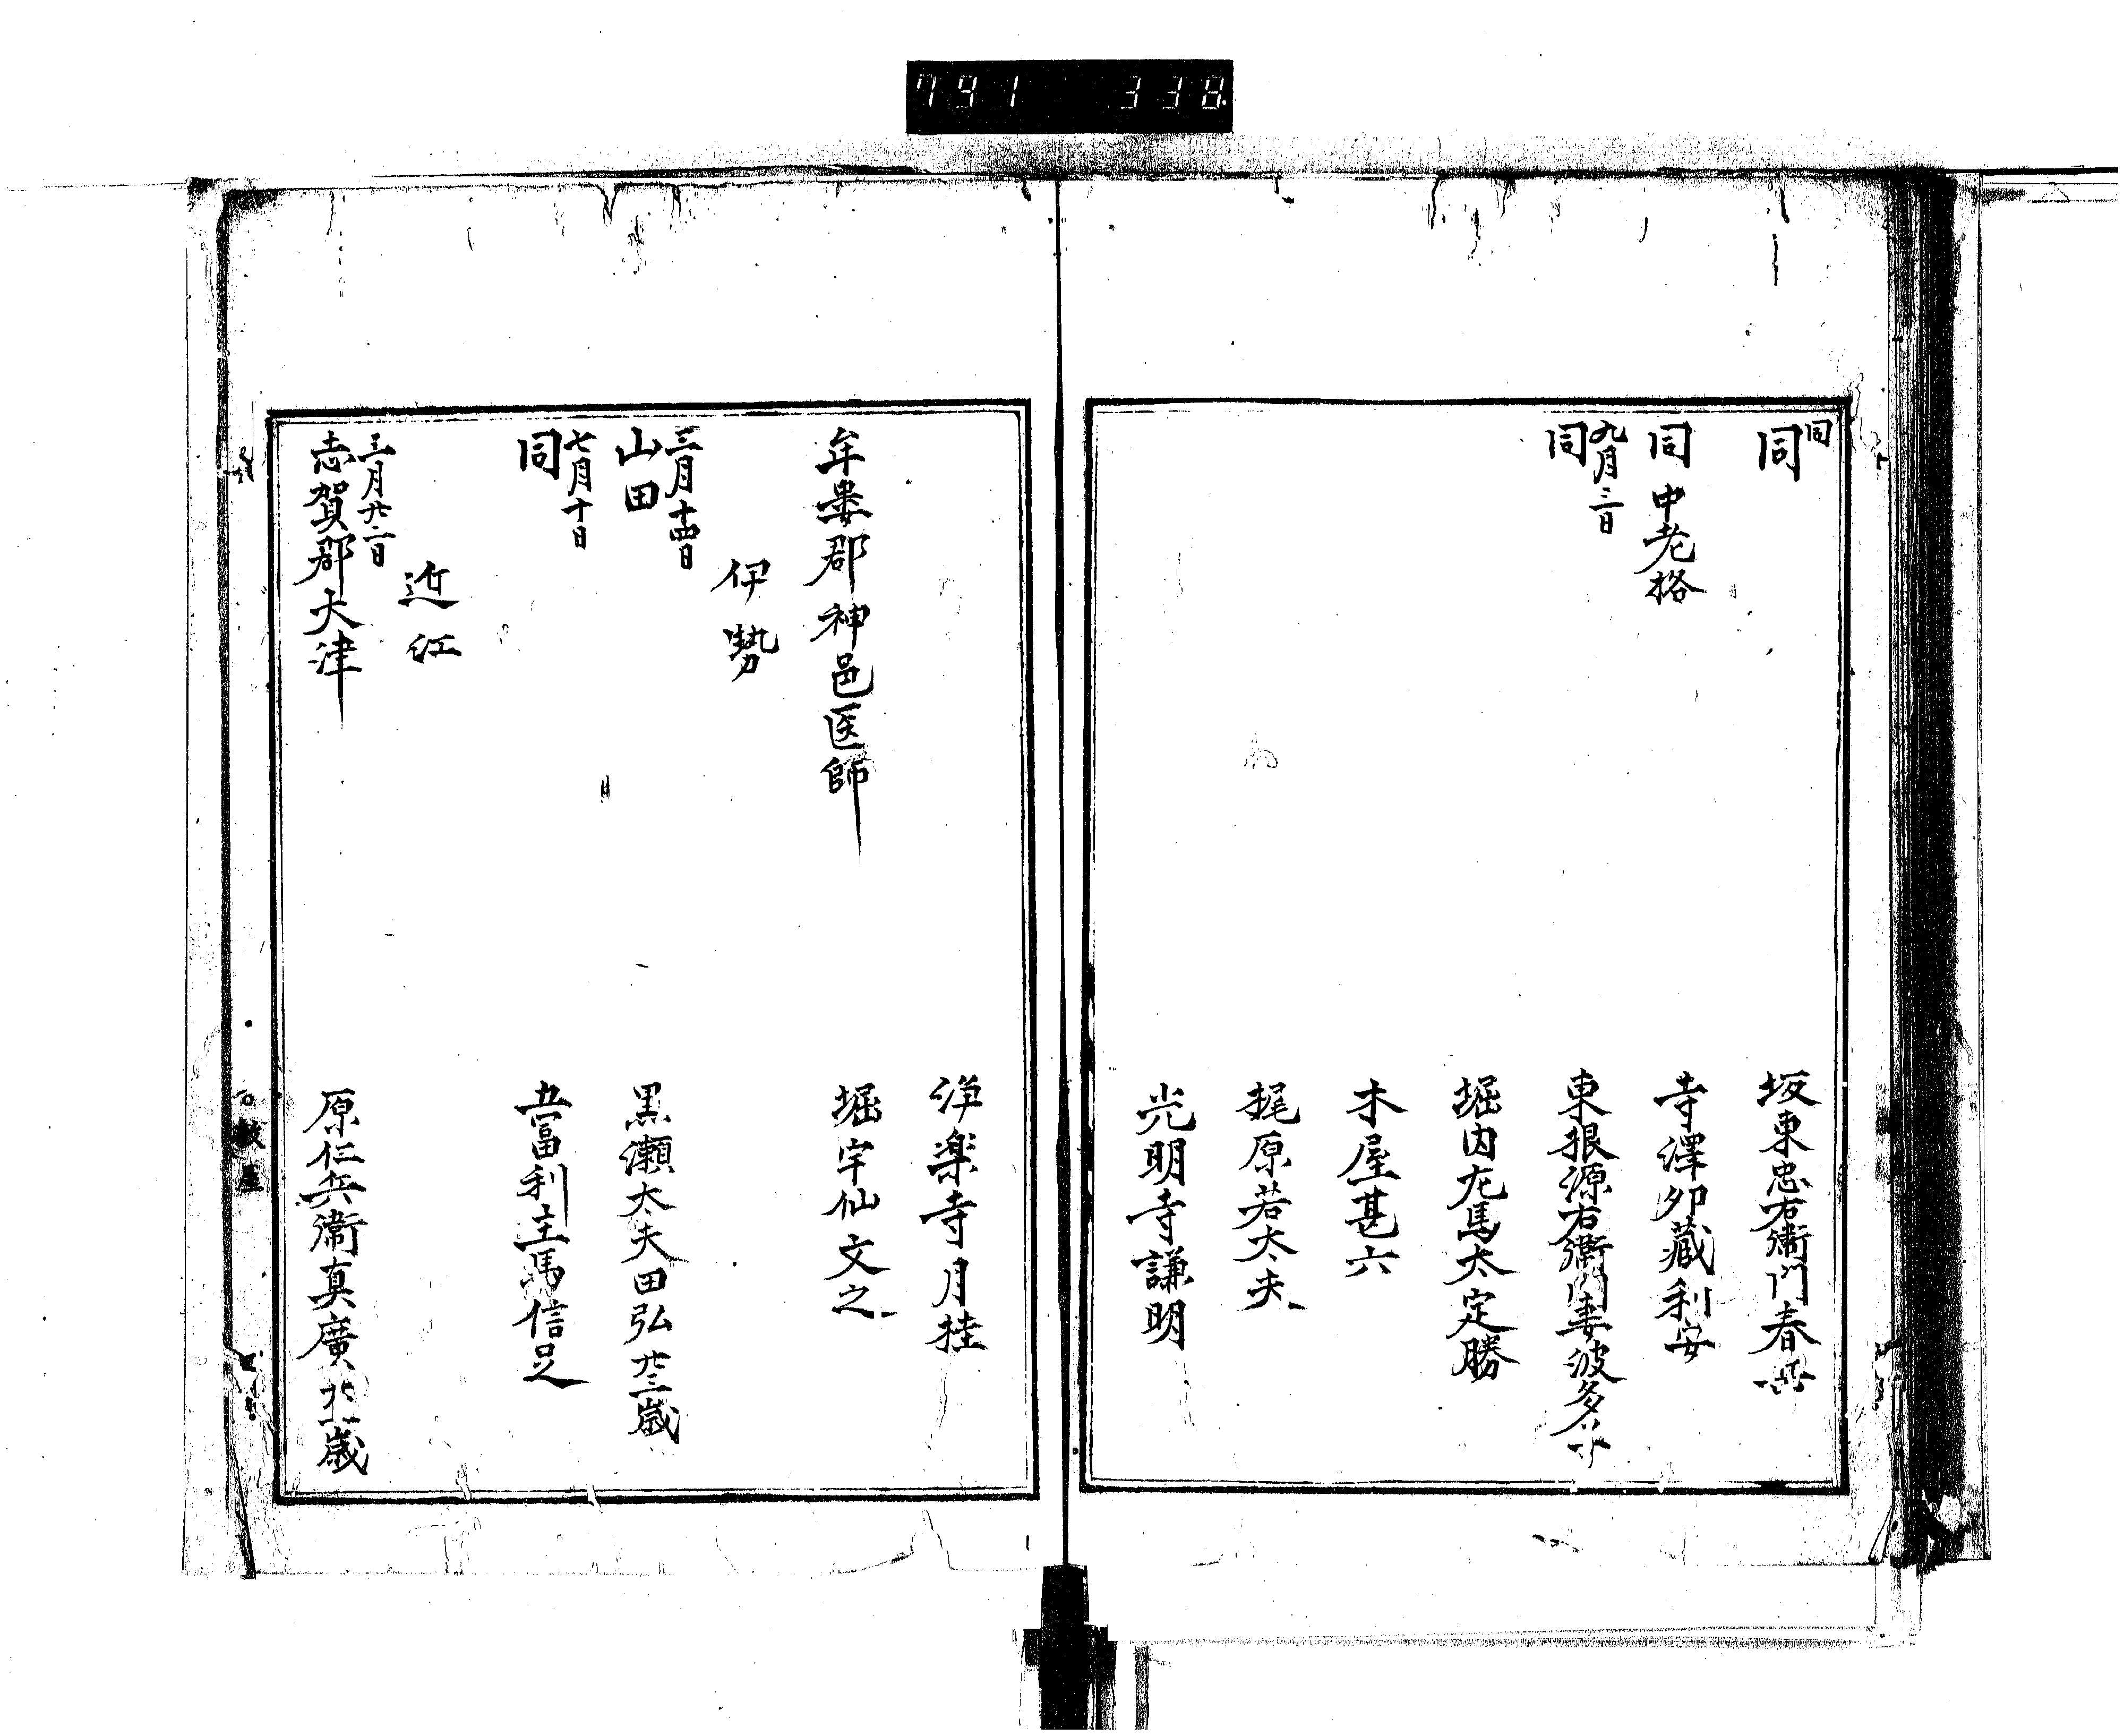 791 338
同
同 坂東忠右衛門春
同 中老格 寺澤卯藏利安
九月三日
同 東根源右衛門妻波多
堀内左馬太定勝
木屋甚六
梶原若太夫
光明寺謙明
浄楽寺月桂
牟婁郡神邑医師 堀宇仙文之
伊勢
三月十四日
山田 黒瀬太夫田弘廿三歳
七月十日
同 冨利主馬信足
近江
三月廿二日
志賀郡大津 原仁兵衛真廣 歳